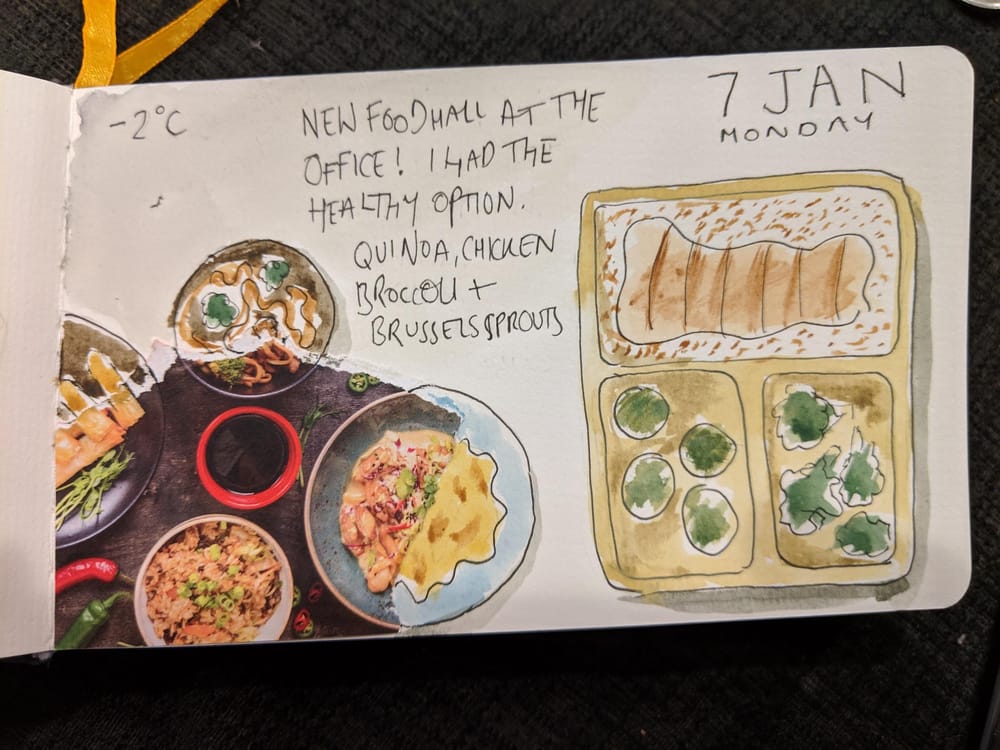 -2°C
7 JAN
MONDAY
NEW FOODHALL AT THE
OFFICE! I HAD THE
HEALTHY OPTION.
QUINOA, CHICKEN
BROCCOLI +
BRUSSELSSPROUTS